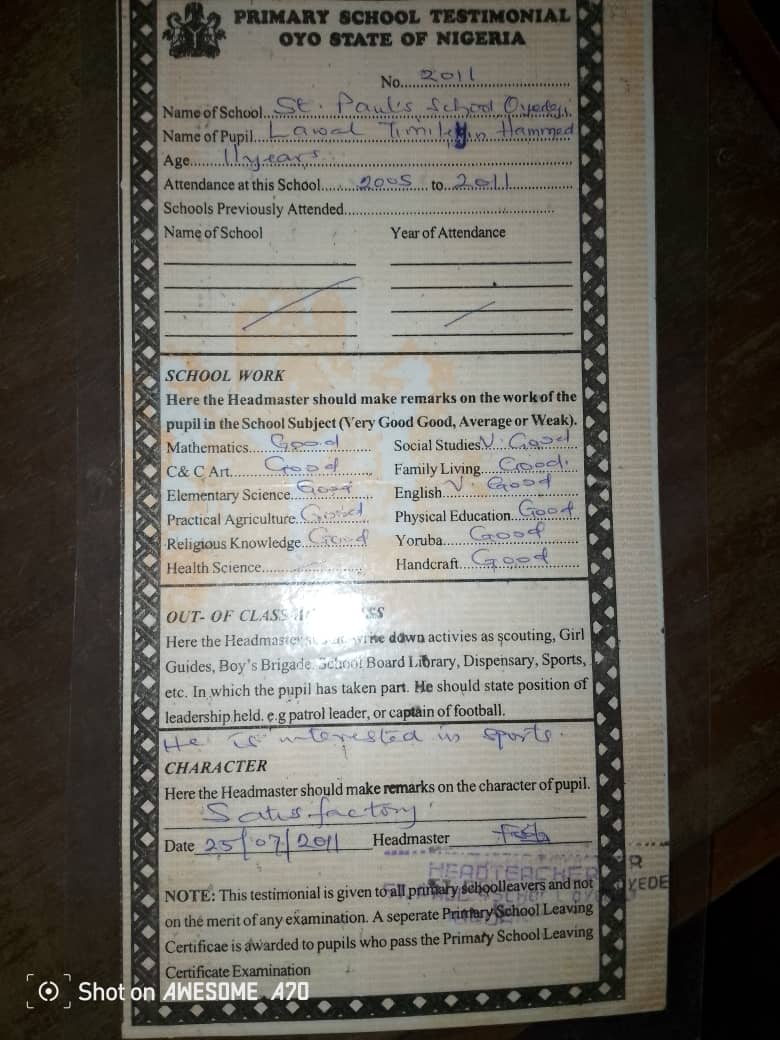 PRIMARY SCHOOL TESTIMONIAL
OYO STATE OF NIGERIA
No....2011
Name of School...St. Paul's School Oyedeji
Name of Pupil...Lawal Timileyin Hammed
Age......11years
Attendance at this School.........2005...to...2011
Schools Previously Attended
Name of School Year of Attendance
SCHOOL WORK
Here the Headmaster should make remarks on the work of the
pupil in the School Subject (Very Good Good, Average or Weak).
Mathematics......Good Social Studies V. Good
C& C Art......Good Family Living....Good.
Elementary Science..Good English......V. Good
Practical Agriculture..Good Physical Education..Good
Religious Knowledge..Good Yoruba......Good
Health Science Handcraft....Good
OUT- OF CLASS
Here the Headmaster write down activies as scouting, Girl
Guides, Boy's Brigade. School Board Library, Dispensary, Sports,
etc. In which the pupil has taken part. He should state position of
leadership held. e.g patrol leader, or captain of football.
He is interested in sports.
CHARACTER
Here the Headmaster should make remarks on the character of pupil.
Satisfactory
Date 25/07/2011 Headmaster
HEADTEACHER
NOTE: This testimonial is given to all primary schoolleavers and not
on the merit of any examination. A seperate Primary School Leaving
Certificae is awarded to pupils who pass the Primary School Leaving
Certificate Examination
Shot on AWESOME A70